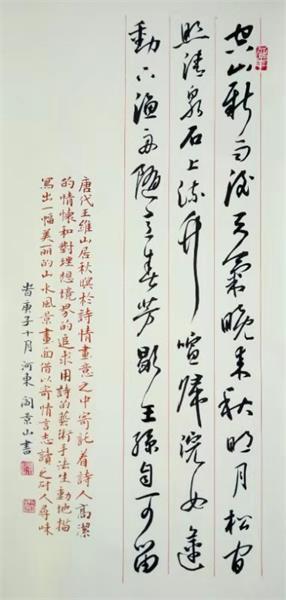 空山新雨後天氣晚来秋明月松间
照清泉石上流竹喧歸浣女蓮
動下渔舟随意春芳歇王孫自可留
唐代王維山居秋暝於詩情畫意之中寄託着詩人高潔
的情懷和對理想境界的追求用詩的藝術手法生動地描
寫出一幅美丽的山水風景畫面借以寄情言志讀之耐人尋味
旹庚子十月河東阎景山書